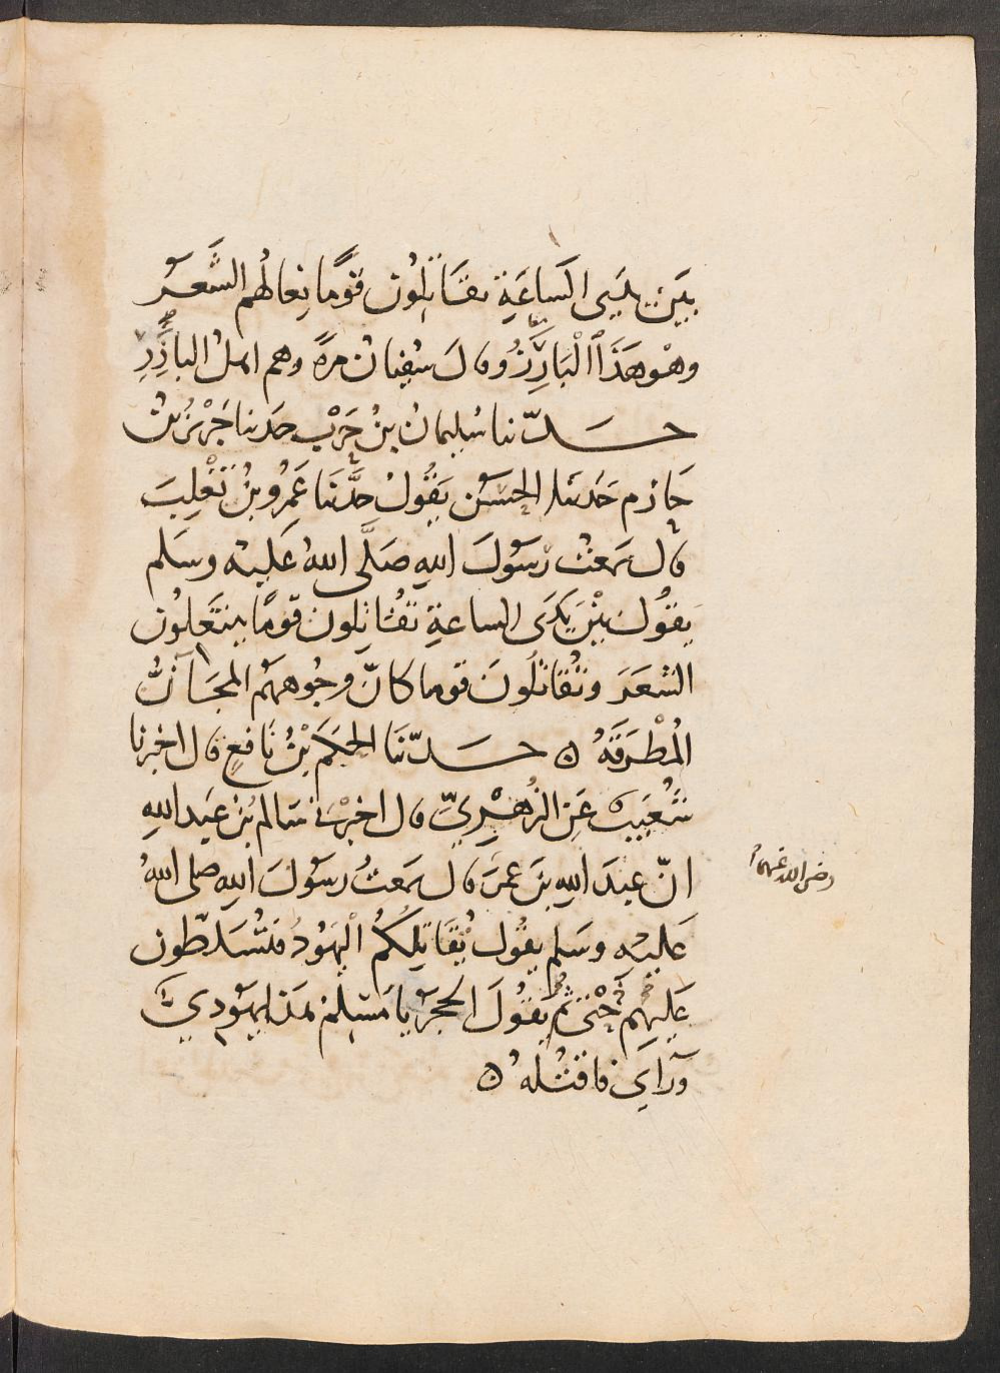 بَيْنَ يَدَيِ السَّاعَةِ تُقَاتِلُونَ قَوْمًا نِعَالُهُم الشَّعَرُ
وهُوَ هَذَا الْبَارِزُ وقالَ سُفيانُ مرةً وهم اهلُ البازِرِ
حدّثنا سُليمانُ بنُ حَرْبٍ حدثنا جَرْيرُ بنُ
حَازم حَدثنا الحَسَن يَقُولُ حدَّثَنَا عَمْرُو بنُ تَغْلِبَ
قال سَمعتُ رَسُولَ اللهِ صَلَّى اللهُ عَليْه وسَلم
يقُولُ بَيْنَ يَدَيِ الساعةِ تُقَاتِلون قَومًا ينتَعِلُون
الشعَرَ وتُقَاتلُونَ قوما كانّ وجُوههُم المجَانُّ
المُطْرَقَةُ ه حدّثَنَا الحَكَم بْنُ نَافعٍ قال اخبرنا
شُعَيبٌ عَنِ الزُهْرِيِّ قال اخبَرَنِي سَالم بْنُ عَبدِ اللهِ
انّ عبدَ اللهِ بنَ عمرَ قال سَمعتُ رسوُلَ اللهِ صلى اللهُ
رضي الله عنهما
عَليْهِ وسَلم يقُول تُقَاتِلُكُمُ الْيَهُودُ فتُسَلَّطُون
عَليْهِم حَتَّى ثُمَّ يَقُولَ الحَجَرُ يا مُسْلم هَذا يَهُودِيٌّ
ورَاءِي فاقتُلْهُ ه